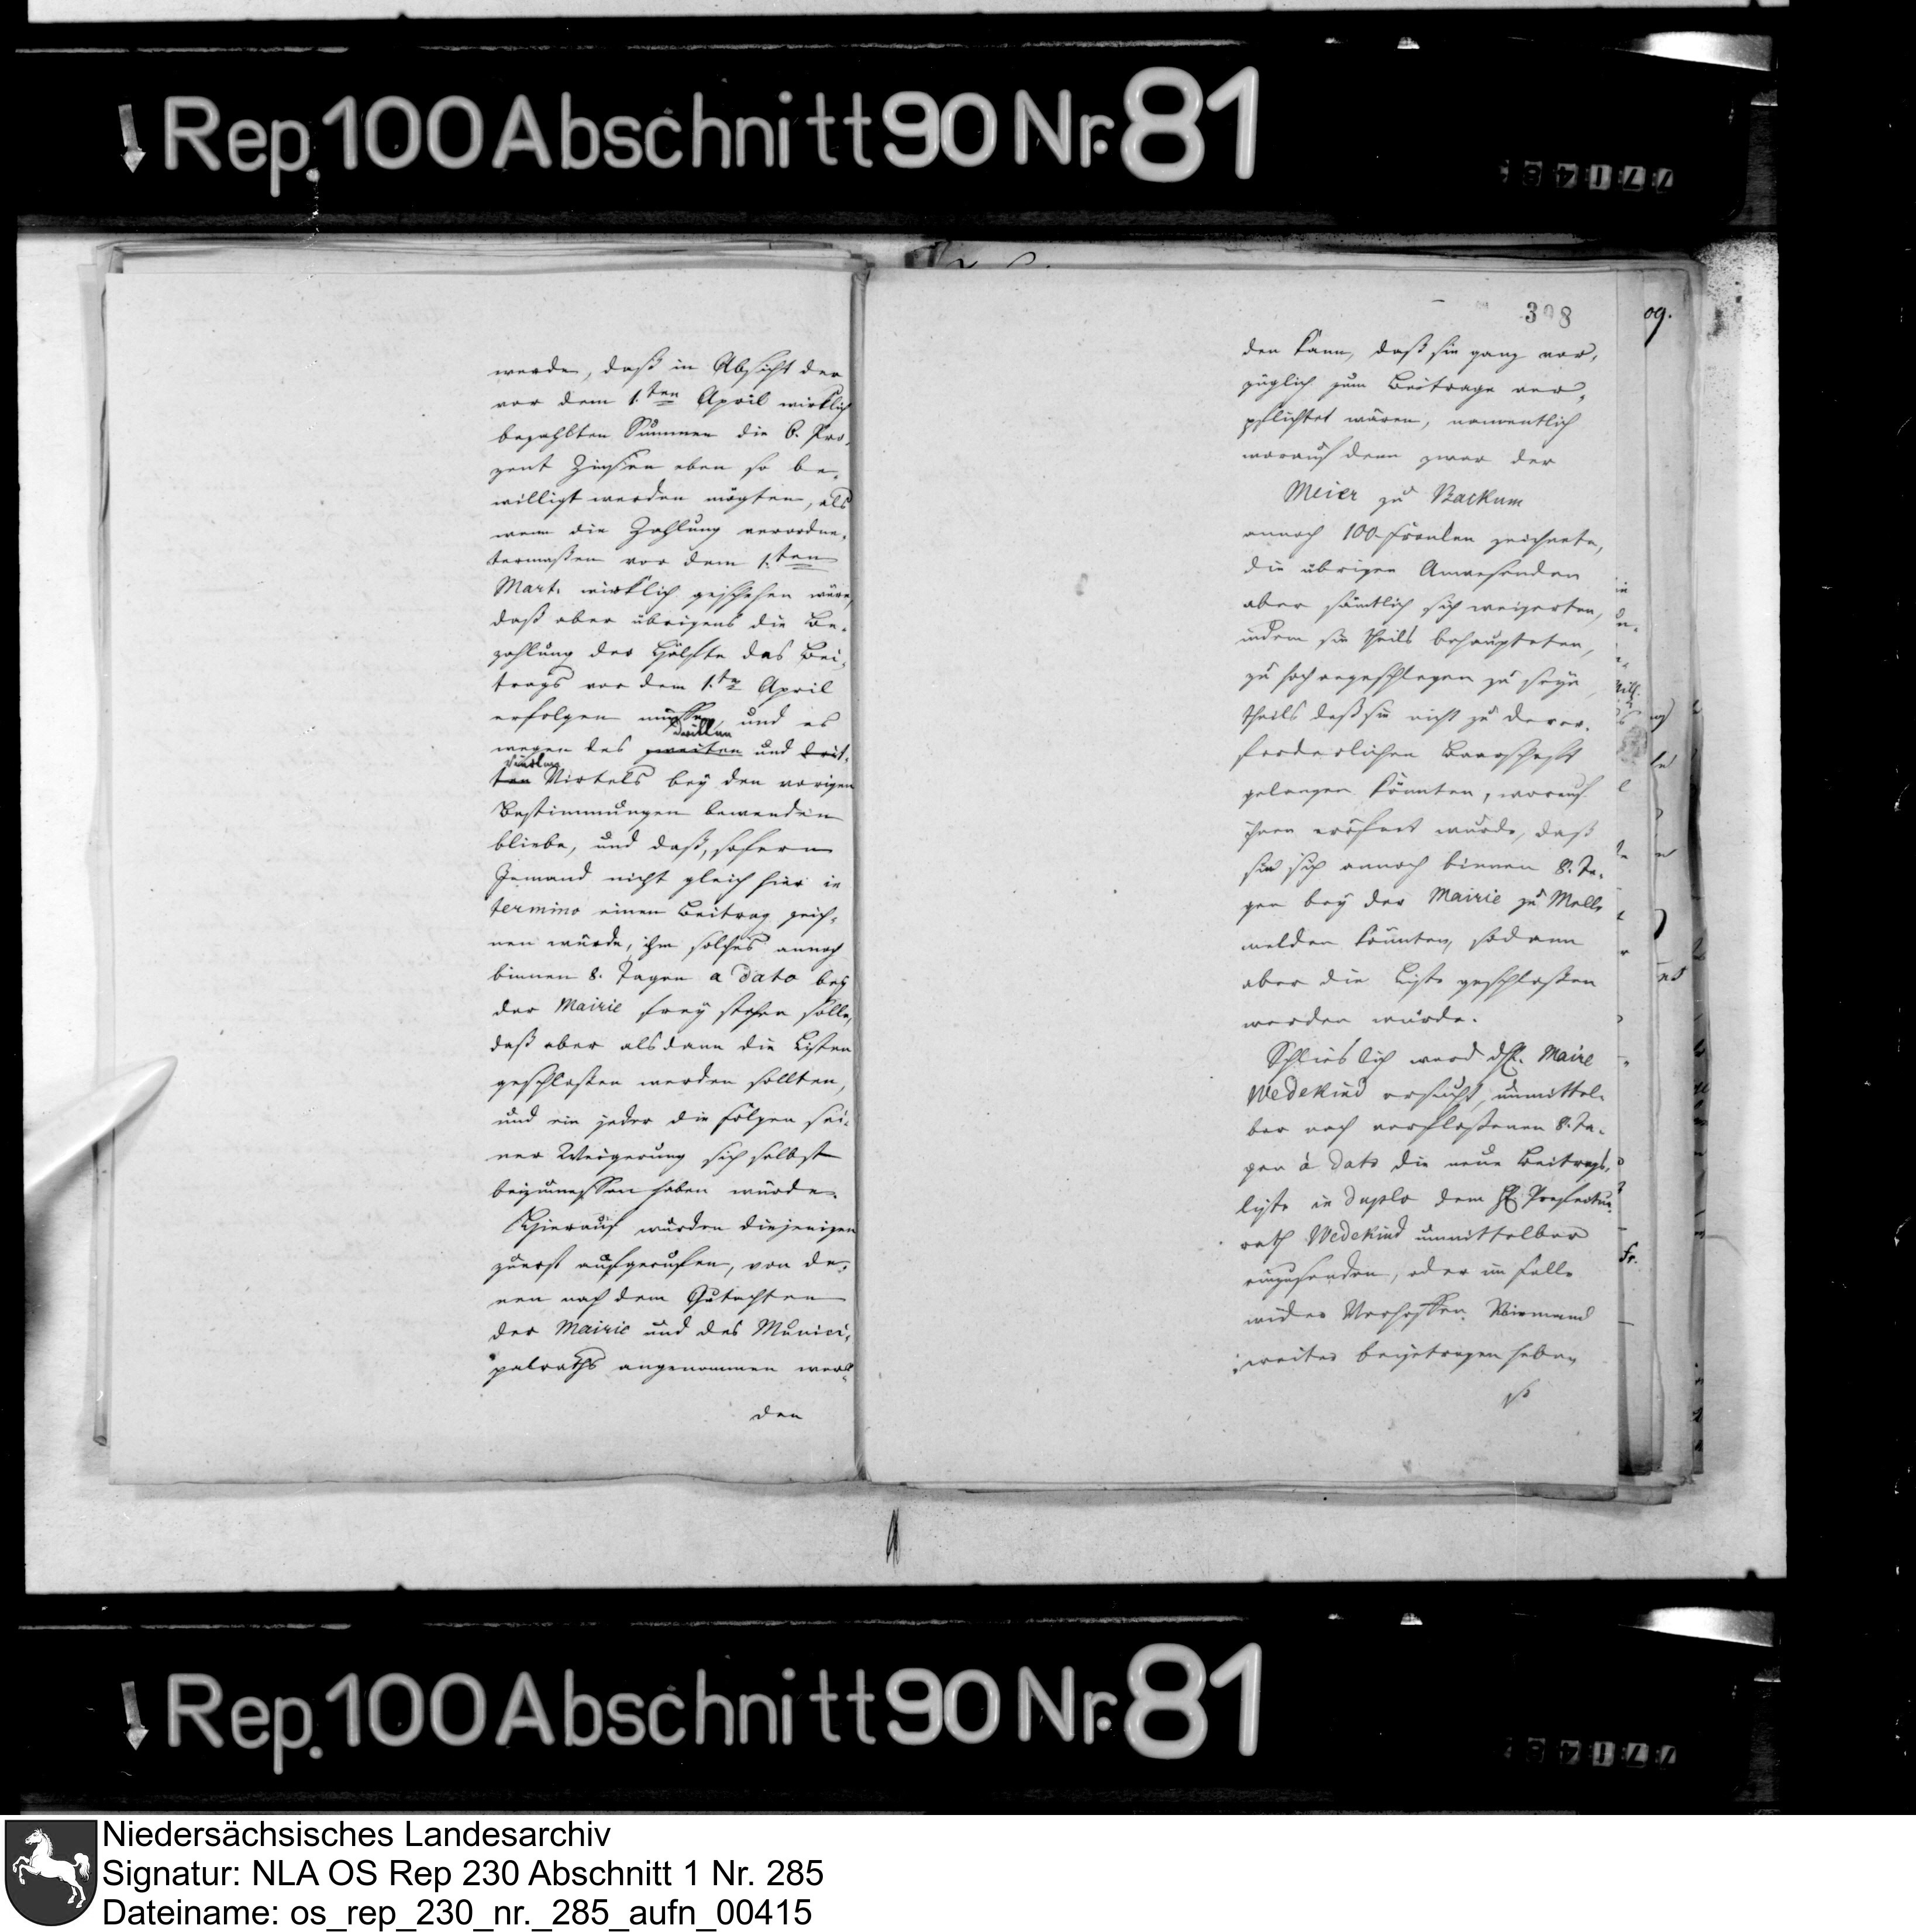 Rep. 100 Abschnitt 90 Nr. 81
werde, daß in Absicht der
vor dem 1.ten April wirklich
bezahlten Summen die 6. Pro-
zent Zinsen eben so be-
willigt werden mögten, als
wenn die Zahlung verordne-
termaßen vor dem 1.ten
Mart. wirklich geschehen wäre,
daß aber übrigens die Be-
zahlung der Hälfte des Bei-
trags vor dem 1.ten April
erfolgen müsse, und es
dritten
wegen des zweiten und drit-
vierten
ten Virtels bey den vorigen
Bestimmungen bewenden
bliebe, und daß, sofern
Jemand nicht gleich hier in
termino einen Beitrag zeich-
nen würde, ihm solches annoch
binnen 8. Tagen a dato bey
der Mairie frey stehen solle,
daß aber alsdann die Listen
geschloßen werden sollten,
und ein jeder die Folgen sei-
ner Weigerung sich selbst
beizumessen haben würde.
Hierauf wurden diejenigen
zuerst aufgerufen, von de-
nen nach dem Gutachten
der Mairie und des Munici-
palraths angenommen wer-
den
308
den kann, daß sie ganz vor-
züglich zum Beitrage ver-
pflichtet wären, namentlich
worauf denn zwar der
Meier zu Backum
annoch 100 Franken zeichnete,
die übrigen Anwesenden
aber sämtlich sich weigerten,
indem sie theils behaupteten,
zu hoch angeschlagen zu seyn
theils daß sie nicht zu der er-
forderlichen Baarschaft
gelangen könnten, worauf
ihnen eröfnet wurde, daß
sie sich annoch binnen 8. Ta-
gen bey der Mairie zu Melle
melden könnten, sodann
aber die Liste geschloßen
werden würde.
Schlieslich ward d. H. Maire
Wedekind ersucht, unmittel-
bar nach verfloßenen 8. Ta-
gen à dato die neue Beitrags-
liste in duplo dem H. Praefectur-
rath Wedekind unmittelbar
einzusenden, oder im Falle
wider Verhoffen Niemand
weiter beigetragen haben
09.
fr.
Rep. 100 Abschnitt 90 Nr. 81
Niedersächsisches Landesarchiv
Signatur: NLA OS Rep 230 Abschnitt 1 Nr. 285
Dateiname: os_rep_230_nr._285_aufn_00415